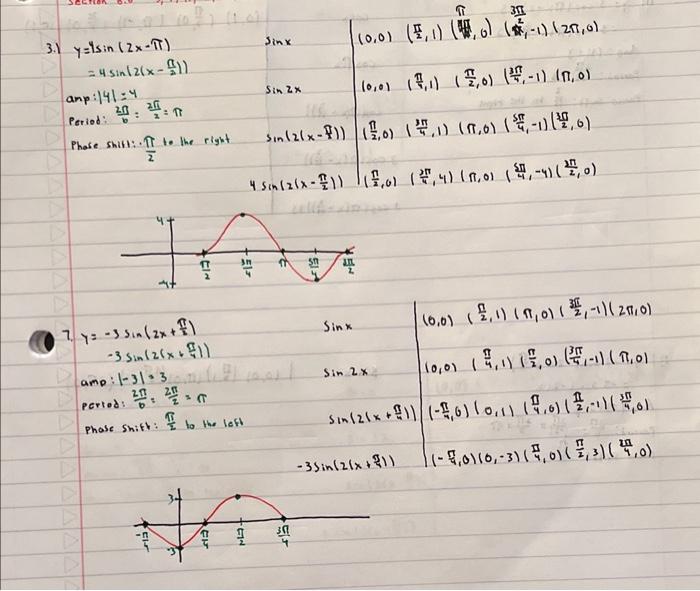 3.) y=4sin(2x-π)
= 4 sin(2(x-π/2))
amp: |4| = 4
Period: 2π/b = 2π/2 = π
Phase Shift: π/2 to the right
sin x | (0,0) (π/2,1) (π,0) (3π/2,-1) (2π,0)
sin 2x | (0,0) (π/4,1) (π/2,0) (3π/4,-1) (π,0)
sin(2(x-π/2)) | (π/2,0) (3π/4,1) (π,0) (5π/4,-1) (3π/2,0)
4 sin(2(x-π/2)) | (π/2,0) (3π/4,4) (π,0) (5π/4,-4) (3π/2,0)
4
-4
π/2 3π/4 π 5π/4 3π/2
7. y = -3 sin(2x+π/2)
-3 sin(2(x+π/4))
amp: |-3| = 3
Period: 2π/b = 2π/2 = π
Phase Shift: π/2 to the left
sin x | (0,0) (π/2,1) (π,0) (3π/2,-1) (2π,0)
sin 2x | (0,0) (π/4,1) (π/2,0) (3π/4,-1) (π,0)
sin(2(x+π/4)) | (-π/4,0) (0,1) (π/4,0) (π/2,-1) (3π/4,0)
-3sin(2(x+π/4)) | (-π/4,0) (0,-3) (π/4,0) (π/2,3) (3π/4,0)
3
-3
-π/4 π/4 π/2 3π/4